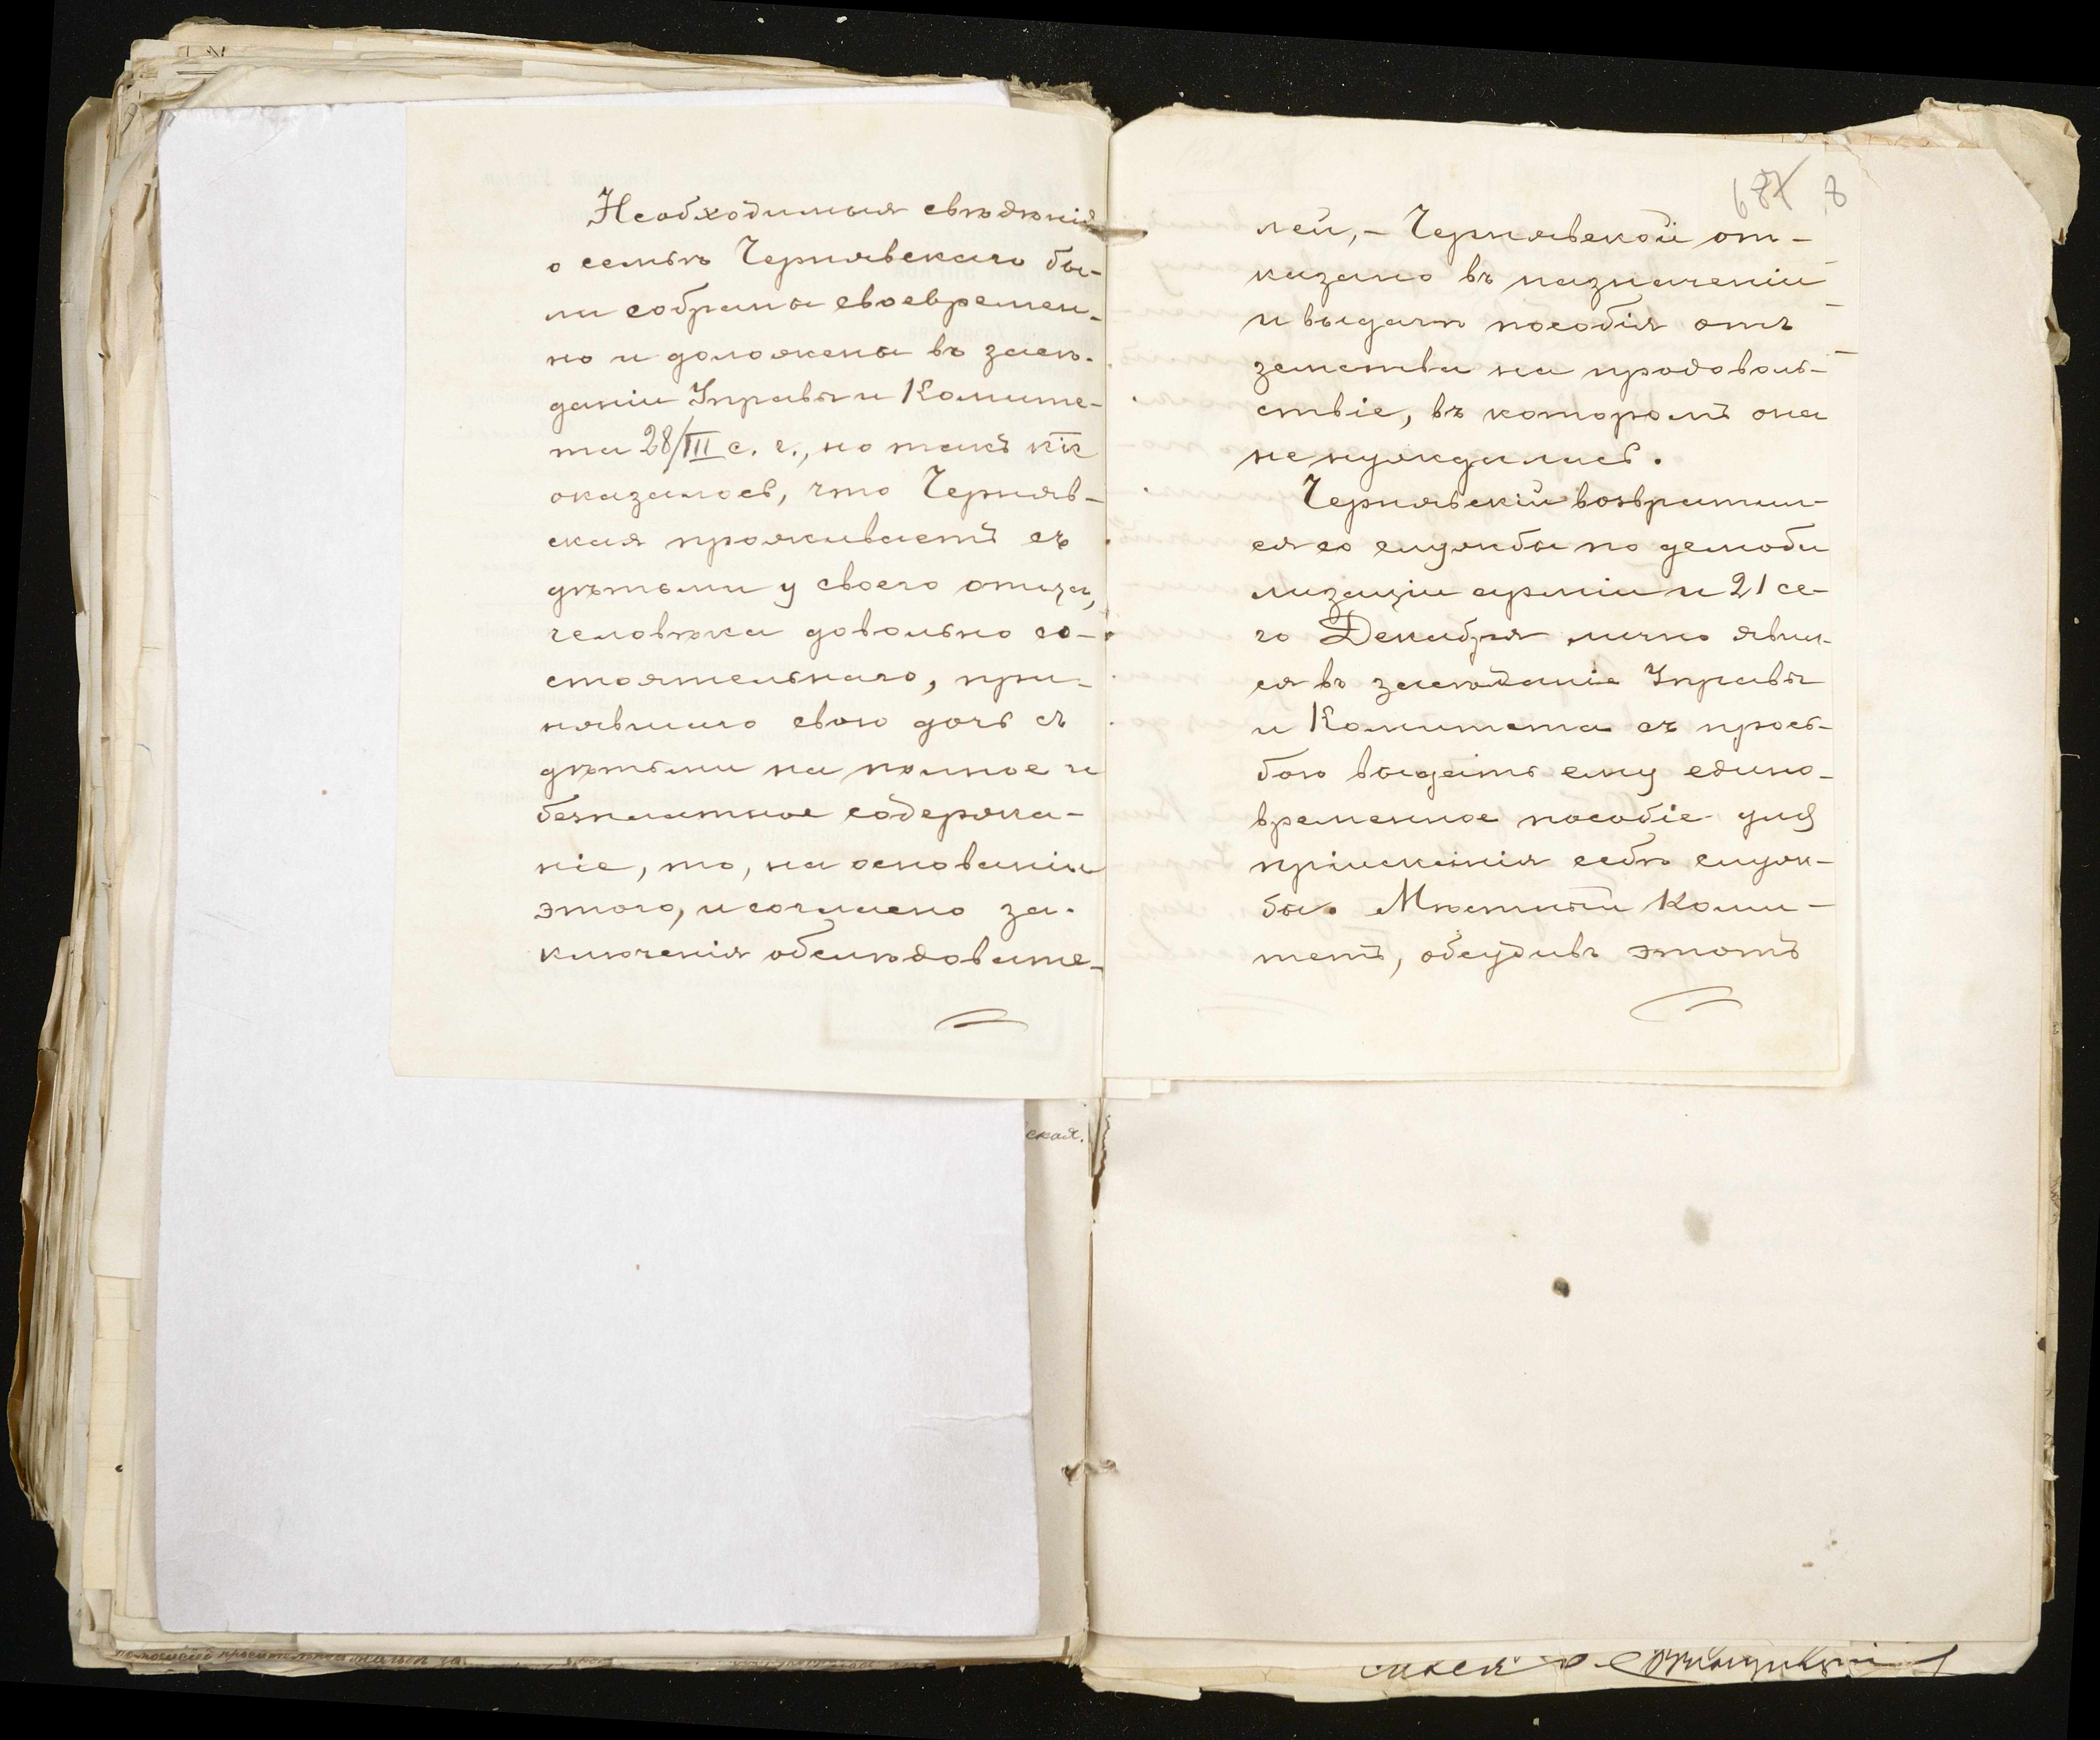 Необходимыя свѣдѣнія
о семьѣ Чернявскаго бы-
ли собраны своевремен-
но и доложены въ засѣ-
даніи Управы и Комите-
та 28/III с. г., но такъ к̅к̅
оказалось, что Черняв-
ская проживаетъ съ
дѣтьми у своего отца,
человѣка довольно со-
стоятельнаго, при-
нявшаго свою дочь съ
дѣтьми на полное и
безплатное содержа-
ніе, то, на основаніи
этого, и согласно за-
ключенія обслѣдовате-
ская.
687 8
лей, - Чернявской от-
казано въ назначеніи
и выдачѣ пособія отъ
земства на продоволь-
ствіе, въ которомъ она
не нуждалась.
Чернявскій возвратил-
ся со службы по демоби
лизаціи арміи и 21 се-
го Декабря лично явил-
ся въ засѣданіе Управы
и Комитета съ прось-
бою выдать ему едино-
временное пособіе для
пріисканія себѣ служ-
бы. Мѣстный Коми-
тетъ, обсудивъ этотъ